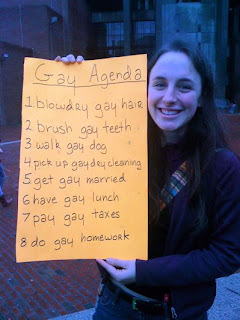 Gay Agenda
1 blowdry gay hair
2 brush gay teeth
3 walk gay dog
4 pick up gay dry cleaning
5 get gay married
6 have gay lunch
7 pay gay taxes
8 do gay homework